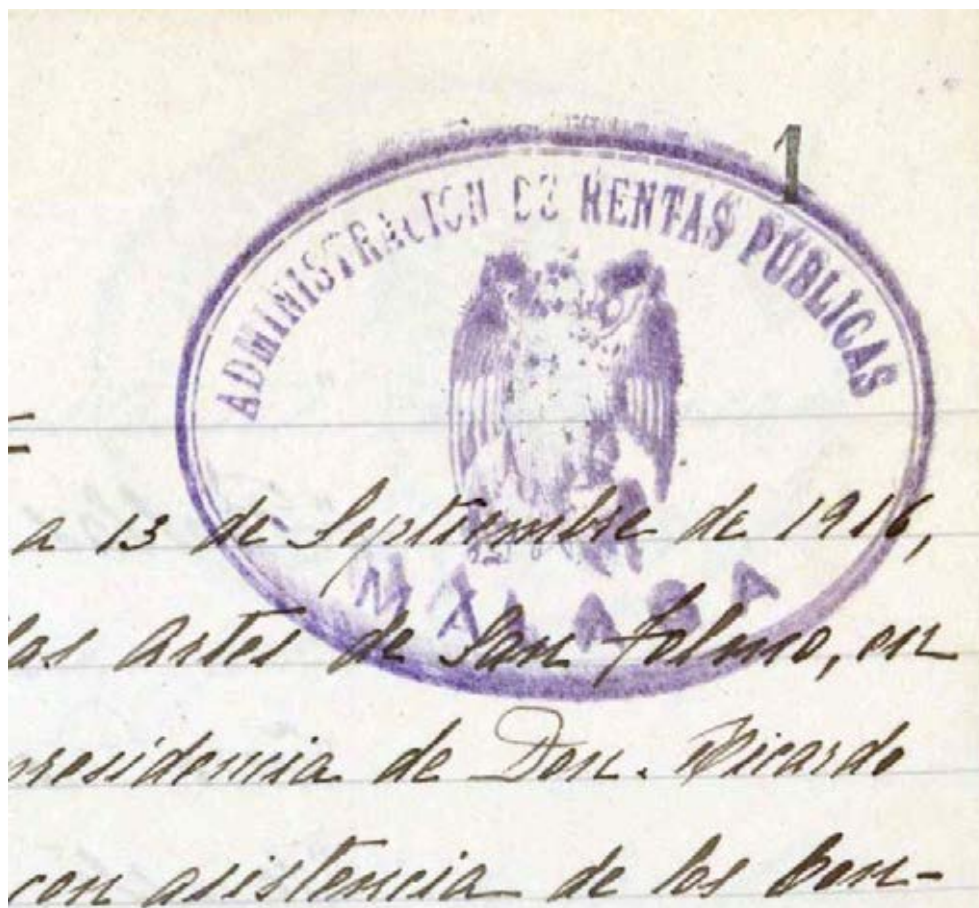 1
ADMINISTRACION DE RENTAS PÚBLICAS
MÁLAGA
a 13 de Septiembre de 1916,
las Artes de San Telmo, en
presidencia de Don. Ricardo
con asistencia de los Con-